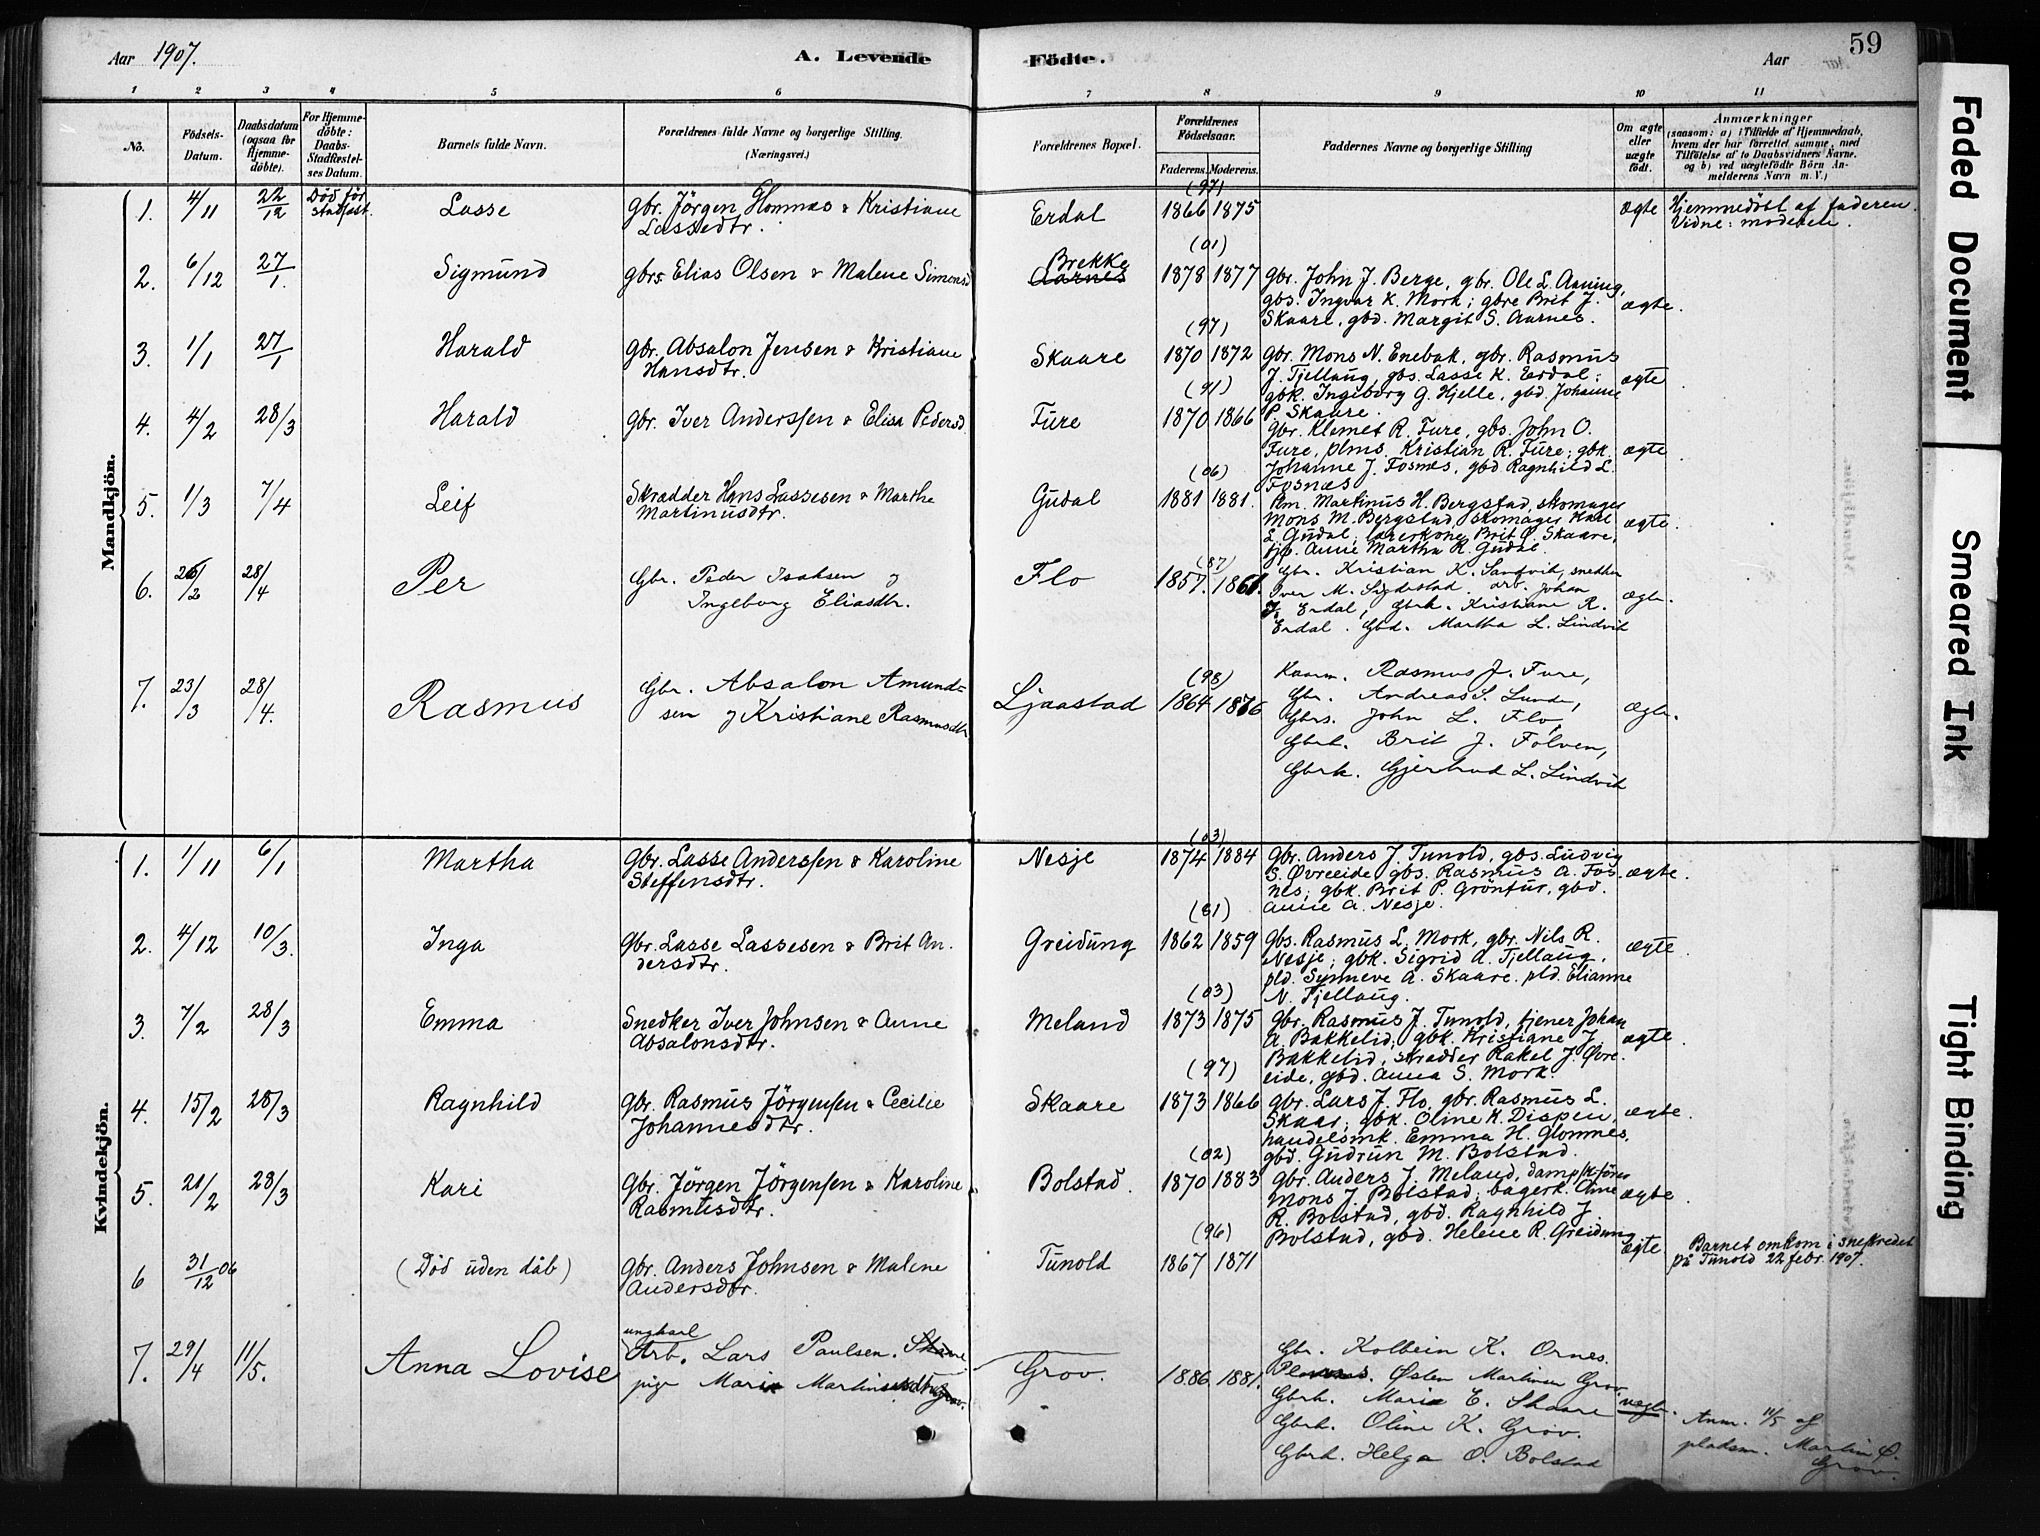 Aar 1907.
A. Levende
Födte.
Aar
59
1 2 3 4 5 6 7 8 9 10 11
No.
Födsels-
Datum.
Daabsdatum
(ogsaa for
Hjemme-
döbte).
For Hjemme-
döbte:
Daabs-
Stadfæstel-
ses Datum.
Barnets fulde Navn.
Forældrenes fulde Navne og borgerlige Stilling.
(Næringsvei.)
Forældrenes Bopæl.
Forældrenes
Födselsaar.
Faderens. Moderens.
Faddernes Navne og borgerlige Stilling
Om ægte
eller
uægte
födt.
Anmærkninger
(saasom: a) i Tilfælde af Hjemmedaab,
hvem der har forrettet samme, med
Tilföielse af to Daabsvidners Navne.
og b) ved uægtefödte Börn An-
melderens Navn m. V.)
Mandkjön.
1. 4/11 22/12 Död för
stadfæst.
Lasse
gbr. Jörgen Hommes & Kristiane
Lassedtr.
Erdal
(97)
1866 1875
ægte
Hjemmedöbt af faderen.
Vidne: moderen.
2. 6/12 27/1.
Sigmund
gbrs Elias Olsen & Malene Simonsd
Brekke
Aarnes
(01)
1878 1877
gbr. John J. Berge, gbr. Ole L. Aaning,
gbs. Ingvar K. Mork; gbre Brit J.
Skaare, gbd. Margit S. Aarnes.
ægte.
3. 1/1 27/1
Harald
gbr. Absalon Jensen & Kristiane
Hansdtr.
Skaare
(97)
1870 1872
gbr. Mons N. Enebak, gbr. Rasmus
J. Tjellaug, gbs. Lasse K. Erdal;
gbk. Ingeborg G. Hjelle, gbd. Johanne
P. Skaare.
ægte.
4. 4/2 28/3
Harald
gbr. Iver Anderssen & Elisa Pedersd.
Fure
(91)
1870 1866
gbr. Klemet R. Fure, gbs. John O.
Fure, plms. Kristian R. Fure; gbk.
Johanne J. Fosnes, gbd Ragnhild L.
Fosnæs
ægte.
5. 1/3 7/4
Leif
Skrædder Hans Lassesen & Marthe
Martinusdtr.
Gudal
(06)
1881 1881.
Martinus H. Bergstad, skomager
Mons M. Bergstad, skomager Karl
L. Gudal; lærerkone Brit O. Skaare,
Anne Martha R. Gudal.
ægte.
6. 26/2 28/4
Per
Gbr. Peder Isaksen og
Ingeborg Eliasdtr.
Flo
(87)
1857. 1861.
Gbr. Kristian K. Sandvik, snekker
Iver M. Sigdestad. arb. Johan
J. Erdal, Gbrk. Kristiane R.
Erdal. Gbd. Martha L. Lindvik
ægte.
7. 23/3 28/4.
Rasmus
Gbr. Absalon Amund-
sen og Kristiane Rasmusdtr
Ljaastad
(98)
1864 1876
Kaarm. Rasmus J. Fure,
Gbr. Andreas S. Lunde,
Gbrs. John L. Flo,
Gbrk. Brit J. Folven,
Gbrk. Gjertrud L. Lindvik
ægte.
Kvindekjön.
1. 1/11 6/1
Martha
gbr. Lasse Anderssen & Karoline
Steffensdtr.
Nesje
(03)
1874 1884
gbr. Anders J. Tunold, gbs. Ludvig
S. Øvreeide, gbs. Rasmus A. Fos-
nes; gbk. Brit P. Gröntur, gbd.
Anne A. Nesje.
ægte.
2. 4/12 10/3.
Inga
Gbr. Lasse Lassesen & Brit An-
dersdtr.
Greidung
(81)
1862 1859
gbs. Rasmus L. Mork, gbr. Nils R.
Nesje; gbk. Sigrid A. Tjellaug,
pld. Synneve A. Skaare. pld. Elianne
N. Tjellaug.
ægte
3. 7/2 28/3
Emma
Snedker Iver Johnsen & Anne
Absalonsdtr.
Meland
(03)
1873 1875
gbr. Rasmus J. Tunold, tjener Johan
A. Bakkelid; gbk. Kristiane J.
Bakkelid, skrædder Rakel J. Øvre-
eide, gbd. Anna S. Mork.
ægte.
4. 15/2 28/3
Ragnhild
gbr. Rasmus Jörgensen & Cecilie
Johannesdtr.
Skaare
(97)
1873 1866
gbr. Lars J. Flo, gbr. Rasmus L.
Skaar; gbk. Oline K. Dispen,
handelsmk. Emma H. Glommes,
gbd. Gudrun M. Bolstad.
ægte.
5. 21/2 28/3
Kari
gbr. Jörgen Jörgensen & Karoline
Rasmusdtr.
Bolstad.
(02)
1870 1883
gbr. Anders J. Meland, dampsk.förer
Mons J. Bolstad; bagerk. Oline
R. Bolstad, gbd. Ragnhild J.
Bolstad, gbd. Helene R. Greidung
ægte.
6 31/12 06
(Död uden dåb)
gbr. Anders Johnsen & Malene
Andersdtr.
Tunold
(96)
1867 1871
ægte
Barnet omkom i sneskredet
på Tunold 22 febr. 1907.
7. 29/4 11/5.
Anna Lovise
ungkarl
Arb. Lars Paulsen. Skaare
pige Marie Martinusdtr Grov.
Grov.
1886. 1881.
Gbr. Kolbein K. Ornes.
Østen Martinsen Grov.
Gbrk. Marie E. Skaare
Gbrk. Oline K. Grov.
Gbrk. Helga O. Bolstad
uægte.
Anm. 11/5 af
pladsm. Martin Ø.
Grov.
Faded Document
Smeared Ink
Tight Binding